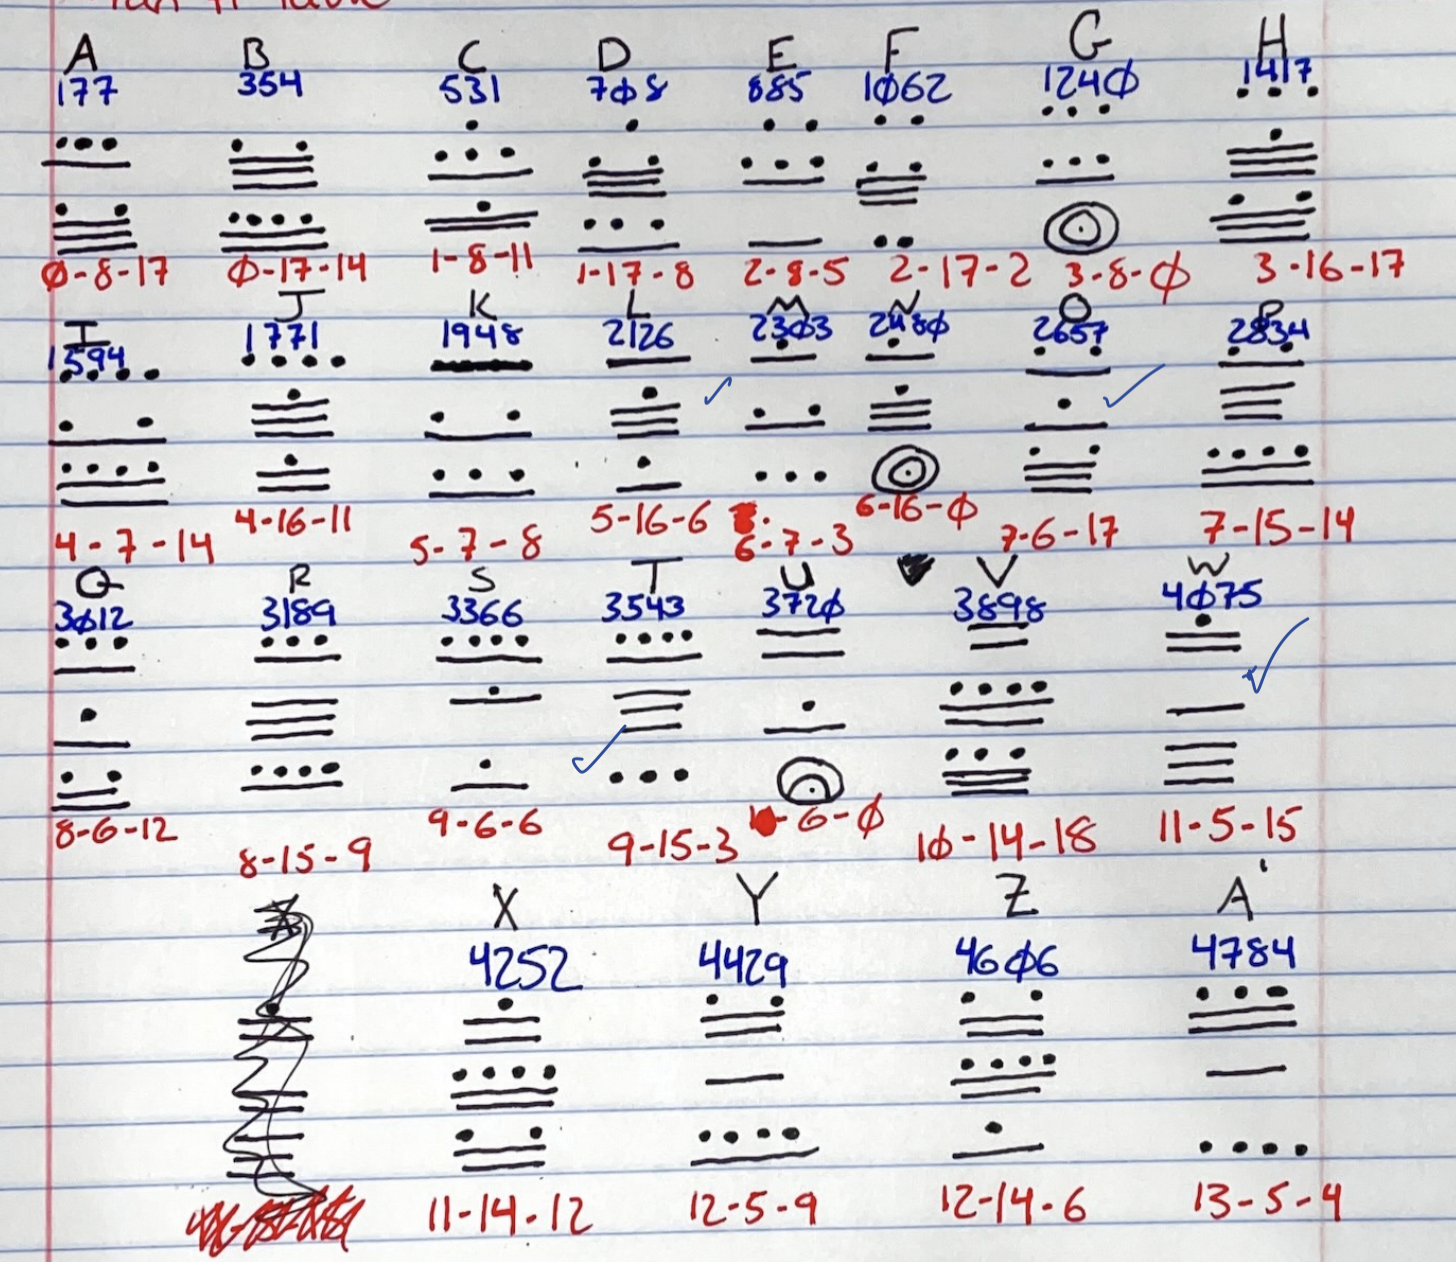 A B C D E F G H
177 354 531 7φ8 885 1φ62 124φ 1417
φ-8-17 φ-17-14 1-8-11 1-17-8 2-8-5 2-17-2 3-8-φ 3-16-17
I J K L M N O P
1594 1771 1948 2126 23φ3 248φ 2657 2834
4-7-14 4-16-11 5-7-8 5-16-6 6-7-3 6-16-φ 7-6-17 7-15-14
Q R S T U V W
3φ12 3189 3366 3543 372φ 3898 4φ75
8-6-12 8-15-9 9-6-6 9-15-3 -6-φ 1φ-14-18 11-5-15
X Y Z A'
4252 4429 46φ6 4784
11-14-12 12-5-9 12-14-6 13-5-4